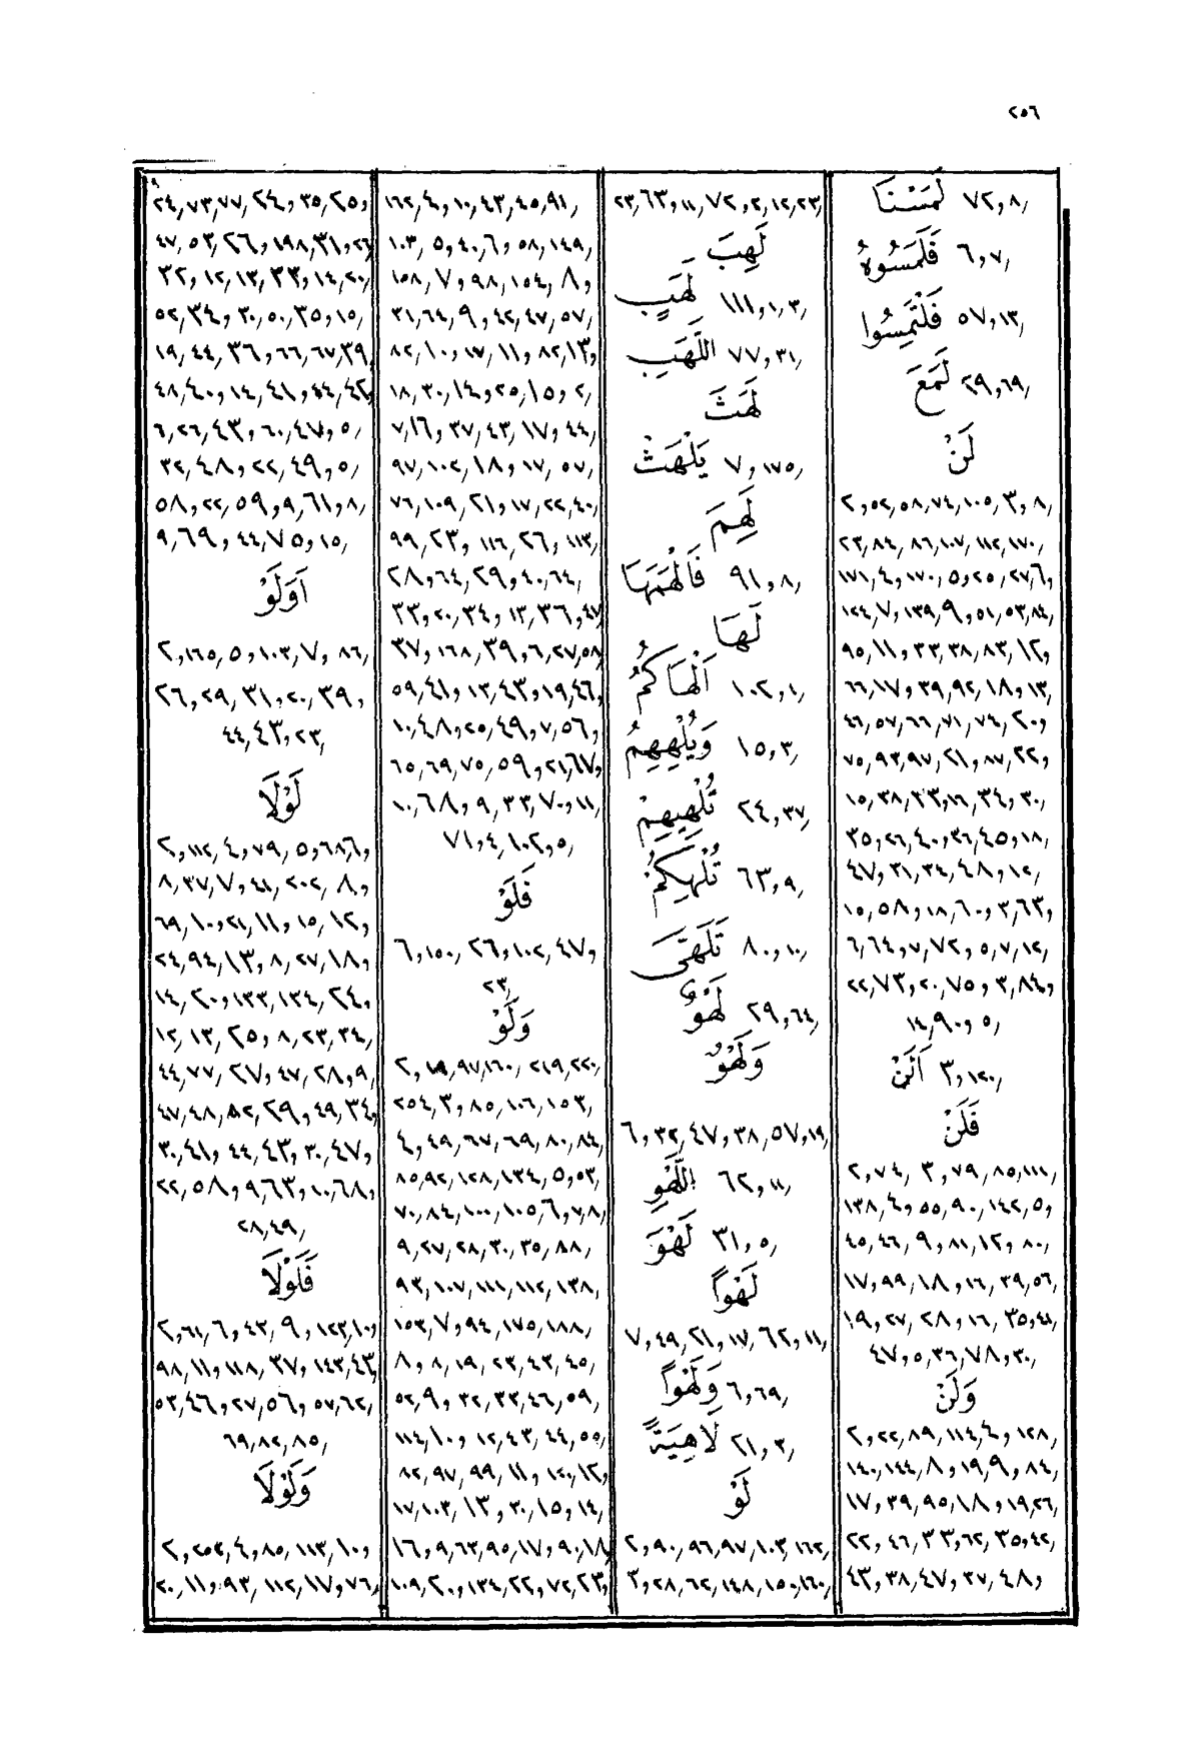 ٢٥٦
لَمَسْنَا ٧٢,٨,
فَلَمَسُوهُ ٦,٧,
فَلْتَمِسُوا ٥٧,١٣,
لَمَعَ ٢٩,٦٩,
لَنْ
٢,٥٢,٥٨,٧٤,١٠٥,٣,٨,
٢٣,٨٤,٨٦,١٠٧,١١٢,١٧٠,
١٧١,٤,١٧٠,٥,٢٥,٢٧,٦,
١٢٤,٧,١٣٩,٩,٥١,٥٣,٨٤,
٩٥,١١,٣٣,٣٨,٨٣,١٢,
٦٦,١٧,٣٩,٩٢,١٨,١٣,
٤٦,٥٧,٦٦,٧١,٧٤,٢٠,
٧٥,٩٣,٩٧,٢١,٨٧,٢٢,
١٥,٣٨,٢٣,١٦,٣٤,٣٠,
٣٥,٢٦,٤٠,٣٦,٤٥,١٨,
٤٧,٣١,٣٤,٤٨,١٢,
١٥,٥٨,١٨,٦٠,٣,٦٣,
٦,٦٤,٧,٧٢,٥,٧,١٢,
٢٢,٧٣,٢٠,٧٥,٣,٨٤,
١٤,٩٠,٥,
اَلَنْ ٣,١٢٠,
فَلَنْ
٢,٧٤,٣,٧٩,٨٥,١١١,
١٣٨,٤,٥٥,٩٠,١٤٢,٥,
٤٥,٤٦,٩,٨١,١٢,٨٠,
١٧,٩٩,١٨,١٦,٣٩,٥٦,
١٩,٢٧,٢٨,١٦,٣٥,٤١,
٤٧,٥,٣٦,٧٨,٣٠,
وَلَنْ
٢,٢٢,٨٩,١١٤,٤,١٢٨,
١٤٠,١٤٤,٨,١٩,٩,٨٤,
١٧,٣٩,٩٥,١٨,١٩,٢٦,
٢٢,٤٦,٣٣,٦٢,٣٥,٤٢,
٤٣,٣٨,٤٧,٣٧,٤٨,
٢٣,٦٣,١١,٧٢,٢,١٢,٢٣,
لَهِبَ
لَهَبٍ ١١١,١,٣,
اللَّهَبِ ٧٧,٣١,
لَهَثَ
يَلْهَثْ ٧,١٧٥,
لَهِمَ
فَاَلْهَمَهَا ٩١,٨,
لَهَا
اَلْهَاكُمُ ١٠٢,١,
وَيُلْهِهِمُ ١٥,٣,
تُلْهِيهِمْ ٢٤,٣٧,
تُلْهِكُمْ ٦٣,٩,
تَلَهَّى ٨٠,١٠,
لَهْوٌ ٢٩,٦٤,
وَلَهْوٌ
٦,٣٢,٤٧,٣٨,٥٧,١٩,
اللَّهْوِ ٦٢,١١,
لَهْوَ ٣١,٥,
لَهْواً
٧,٤٩,٢١,١٧,٦٢,١١,
وَلَهْواً ٦,٦٩,
لَاهِيَةً ٢١,٣,
لَوْ
٢,٩٠,٩٦,٩٧,١٠٢,١٦٢,
٣,٢٨,٦٢,١٤٨,١٥٠,١٦٠,
١٦٢,٤,١٠,٤٣,٤٥,٩١,
١٠٣,٥,٤٠,٦,٥٨,١٤٩,
١٥٨,٧,٩٨,١٥٤,٨,
٣١,٦٤,٩,٤٢,٤٧,٥٧,
٨٢,١٠,١٧,١١,٨٢,١٣,
١٨,٣٠,١٤,٢٥,١٥,٢,
٧,١٦,٣٧,٤٣,١٧,٤٤,
٩٧,١٠٢,١٨,١٧,٥٧,
٧٦,١٠٩,٢١,١٧,٢٢,٤٠,
٩٩,٢٣,١١٦,٢٦,١١٣,
٢٨,٦٤,٢٩,٤٠,٦٤,
٣٣,٢٠,٣٤,١٣,٣٦,٤٧,
٣٧,١٦٨,٣٩,٦,٤٧,٥٨,
٥٩,٤١,١٣,٤٣,١٩,٤٦,
١٠,٤٨,٢٥,٤٩,٧,٥٦,
٦٥,٦٩,٧٥,٥٩,٢١,٦٧,
١٠,٦٨,٩,٣٣,٧٠,١١,
٧١,٤,١٠٢,٥,
فَلَوْ
٦,١٥٠,٢٦,١٠٢,٤٧,
٢٣,
وَلَوْ
٢,١٩,٩٧,١٦٠,٢١٩,٢٢٠,
٢٥٤,٣,٨٥,١٠٦,١٥٣,
٤,٤٩,٦٧,٦٩,٨٠,٨٤,
٨٥,٩٢,١٢٨,١٣٤,٥,٥٣,
٧٠,٨٤,١٠٠,١٠٥,٦,٧,٨,
٩,٢٧,٢٨,٣٠,٣٥,٨٨,
٩٣,١٠٧,١١١,١١٢,١٣٨,
١٥٣,٧,٩٤,١٧٥,١٨٨,
٨,٨,١٩,٢٣,٤٣,٤٥,
٥٢,٩,٣٢,٣٣,٤٦,٥٩,
١١٤,١٠,١٢,٤٣,٤٤,٥٥,
٨٢,٩٧,٩٩,١١,١٢٠,١٢,
١٧,١٠٣,١٣,٣٠,١٥,١٤,
١٦,٩,٦٣,٩٥,١٧,٩٠,١٨,
١٠٩,٢٠,١٣٤,٢٢,٧٢,٢٣,
٢٤,٧٣,٧٧,٢٤,٣٥,٢٥,
٤٧,٥٣,٢٦,١٩٨,٣١,٢٦,
٣٢,١٢,١٣,٣٣,١٤,٢٠,
٥٢,٣٤,٣٠,٥٠,٣٥,١٥,
١٩,٤٤,٣٦,٦٦,٦٧,٣٩,
٤٨,٤٠,١٤,٤١,٤٤,٤٢,
٦,٢٦,٤٣,٦٠,٤٧,٥,
٣٢,٤٨,٢٢,٤٩,٥,
٥٨,٢٢,٥٩,٩,٦١,٨,
٩,٦٩,٤٤,٧٥,١٥,
اَوَلَوْ
٢,١٦٥,٥,١٠٣,٧,٨٦,
٢٦,٢٩,٣١,٢٠,٣٩,
٤٤,٤٣,٢٣,
لَوْلَا
٢,١١٢,٤,٧٩,٥,٦٨,٦,
٨,٣٧,٧,٤١,٢٠٢,٨,
٦٩,١٠,٢١,١١,١٥,١٢,
٢٤,٩٤,١٣,٨,٢٧,١٨,
١٤,٢٠,١٣٣,١٣٤,٢٤,
١٢,١٣,٢٥,٨,٢٣,٣٤,
٤٤,٧٧,٢٧,٤٧,٢٨,٩,
٤٧,٤٨,٨٢,٢٩,٤٩,٣٤,
٣٠,٤١,٤٤,٤٣,٣٠,٤٧,
٢٢,٥٨,٩,٦٣,١٠,٦٨,
٢٨,٤٩,
فَلَوْلَا
٢,٦١,٦,٤٣,٩,١٢٣,١٠,
٩٨,١١,١١٨,٣٧,١٤٣,٤٣,
٥٣,٤٦,٢٧,٥٦,٥٧,٦٢,
٦٩,٨٢,٨٥,
وَلَوْلَا
٢,٢٥٢,٤,٨٥,١١٣,١٠,
٢٠,١١,٩٣,١١٢,١٧,٧٦,